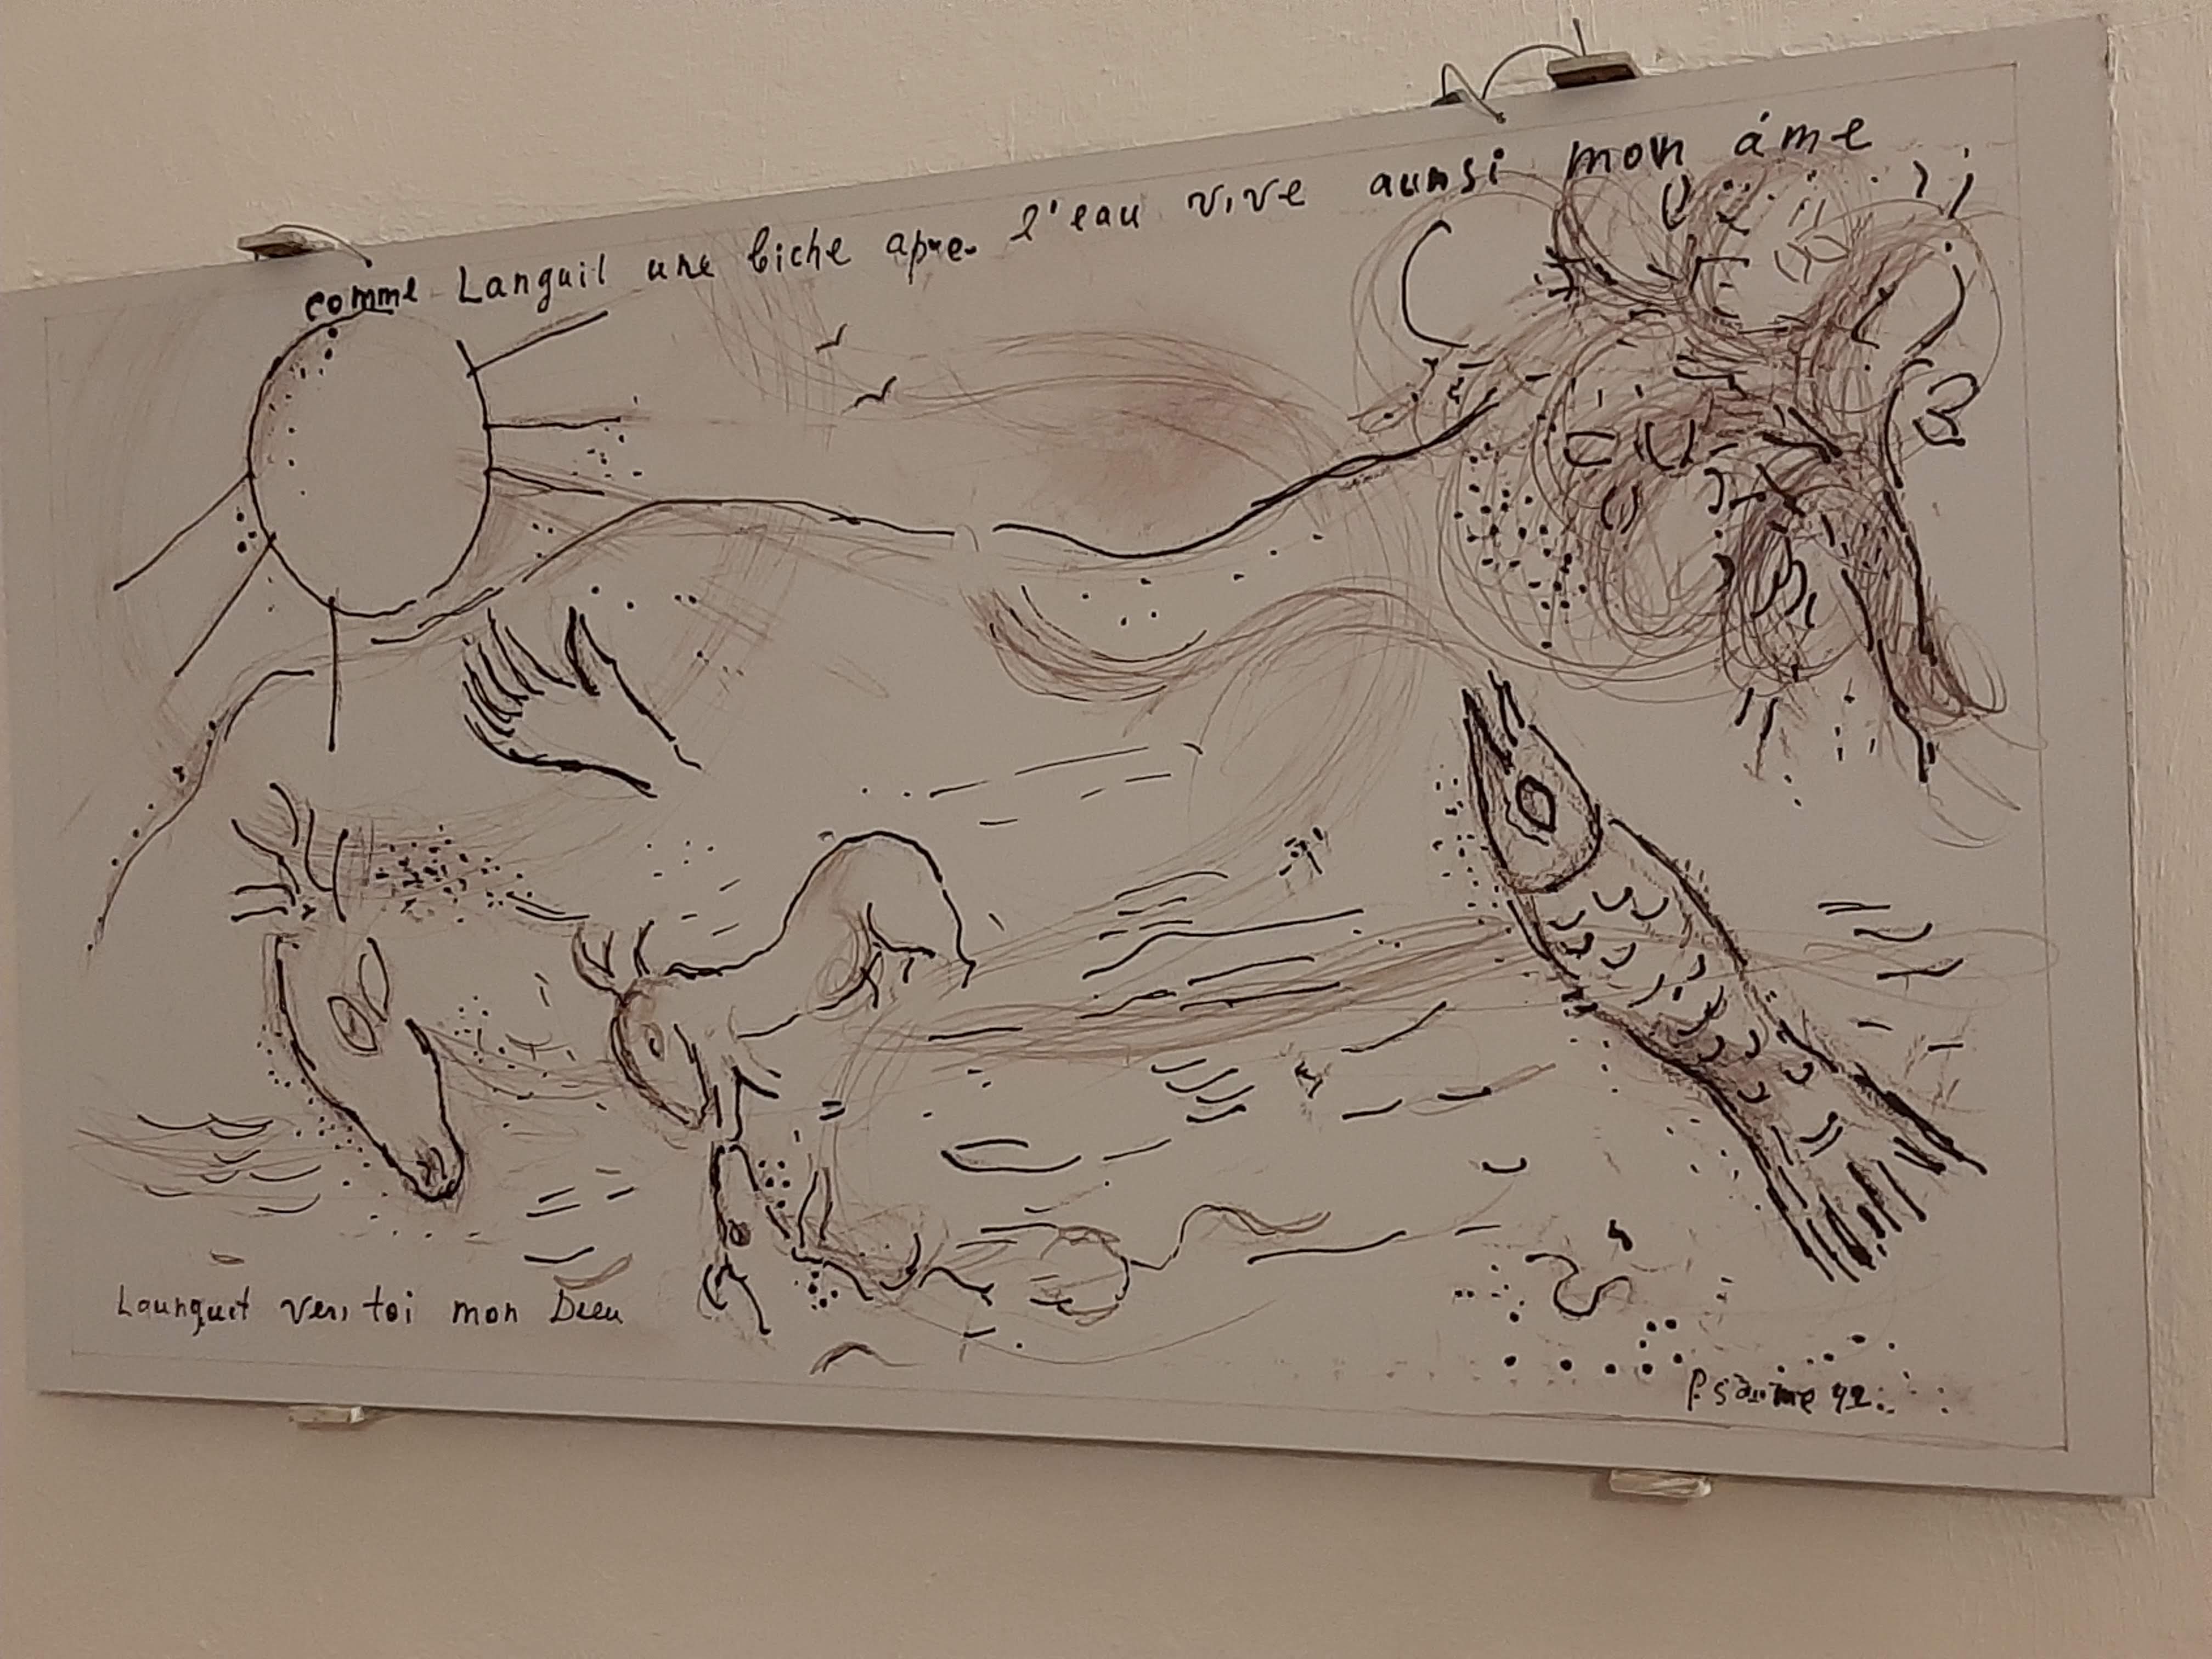 comme Languil une biche apres l'eau vive aunsi mon áme
Launguet vers toi mon Dieu
Psaume 42.